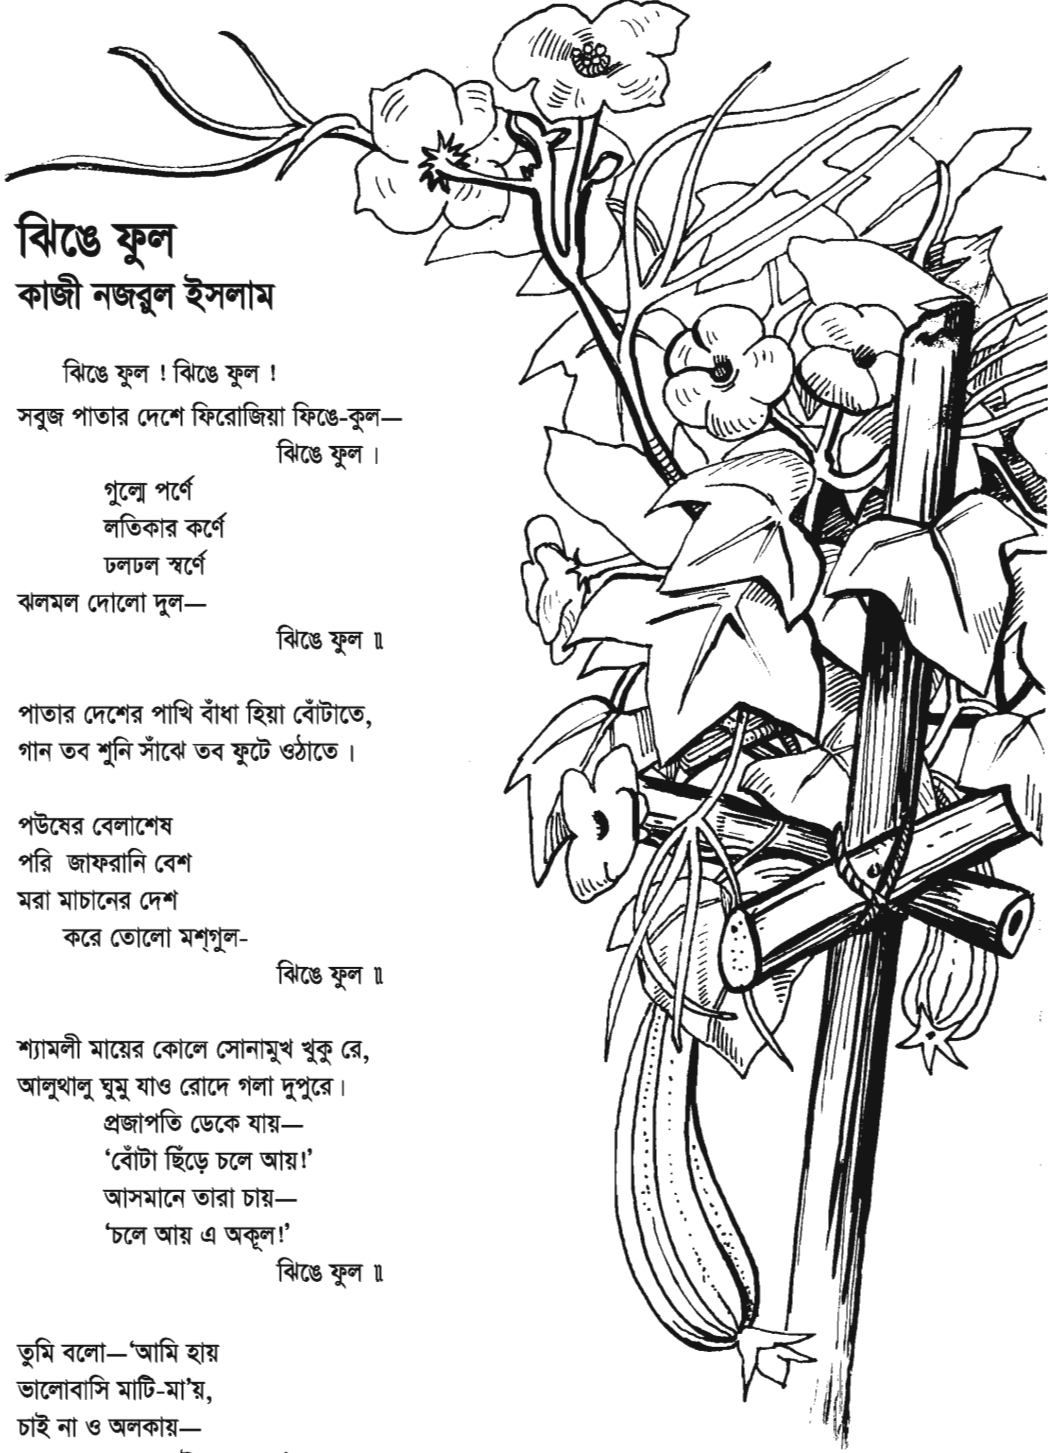 ঝিঙে ফুল
কাজী নজরুল ইসলাম
ঝিঙে ফুল ! ঝিঙে ফুল !
সবুজ পাতার দেশে ফিরোজিয়া ফিঙে-কুল—
ঝিঙে ফুল ।
গুল্মে পর্ণে
লতিকার কর্ণে
ঢলঢল স্বর্ণে
ঝলমল দোলো দুল—
ঝিঙে ফুল ॥
পাতার দেশের পাখি বাঁধা হিয়া বোঁটাতে,
গান তব শুনি সাঁঝে তব ফুটে ওঠাতে ।
পউষের বেলাশেষ
পরি জাফরানি বেশ
মরা মাচানের দেশ
করে তোলো মশ্‌গুল-
ঝিঙে ফুল ॥
শ্যামলী মায়ের কোলে সোনামুখ খুকু রে,
আলুথালু ঘুমু যাও রোদে গলা দুপুরে ।
প্রজাপতি ডেকে যায়—
‘বোঁটা ছিঁড়ে চলে আয়!’
আসমানে তারা চায়—
‘চলে আয় এ অকূল!’
ঝিঙে ফুল ॥
তুমি বলো—‘আমি হায়
ভালোবাসি মাটি-মা’য়,
চাই না ও অলকায়—